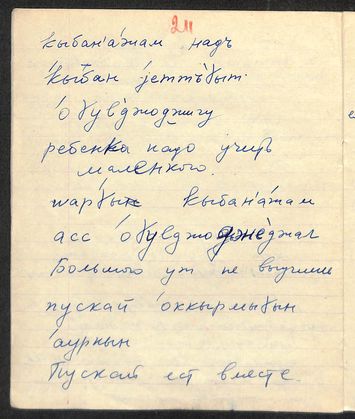 24
кыбан'а́жам надъ
кы́бан је́ттъ̄ɣыт.
о́ɣув'джоджигу
ребенка надо учить
маленкого.
шарɣы́н кыбан'а́жам
асс о́ɣулджоджеджал
Большого уж не выучиш
пускай о́ккырмыɣын
а́урнын
Пускай ест вместе.